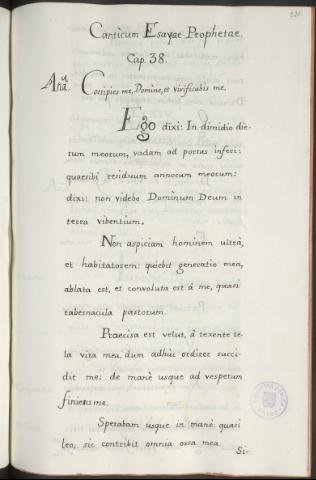 Canticum Esayae Prophetae.
Cap. 38.
Aña. Corripies me, Domine, et vivificabis me.
Ego dixi: In dimidio die-
rum meorum, vadam ad portas inferi:
quaesibi residuum annorum meorum:
dixi: non videbo Dominum Deum in
terra vibentium.
Non aspiciam hominem ultrà,
et habitatorem: quiebit generatio mea,
ablata est, et convoluta est á me, quasi
tabernacula pastorum.
Praecisa est velut, á texente te-
la vita mea, dum adhùc ordirer succi-
dit me: de manè usque ad vesperum
finiens me.
Sperabam usque in manè quasi
leo, sic contribit omnia ossa mea.
Si-